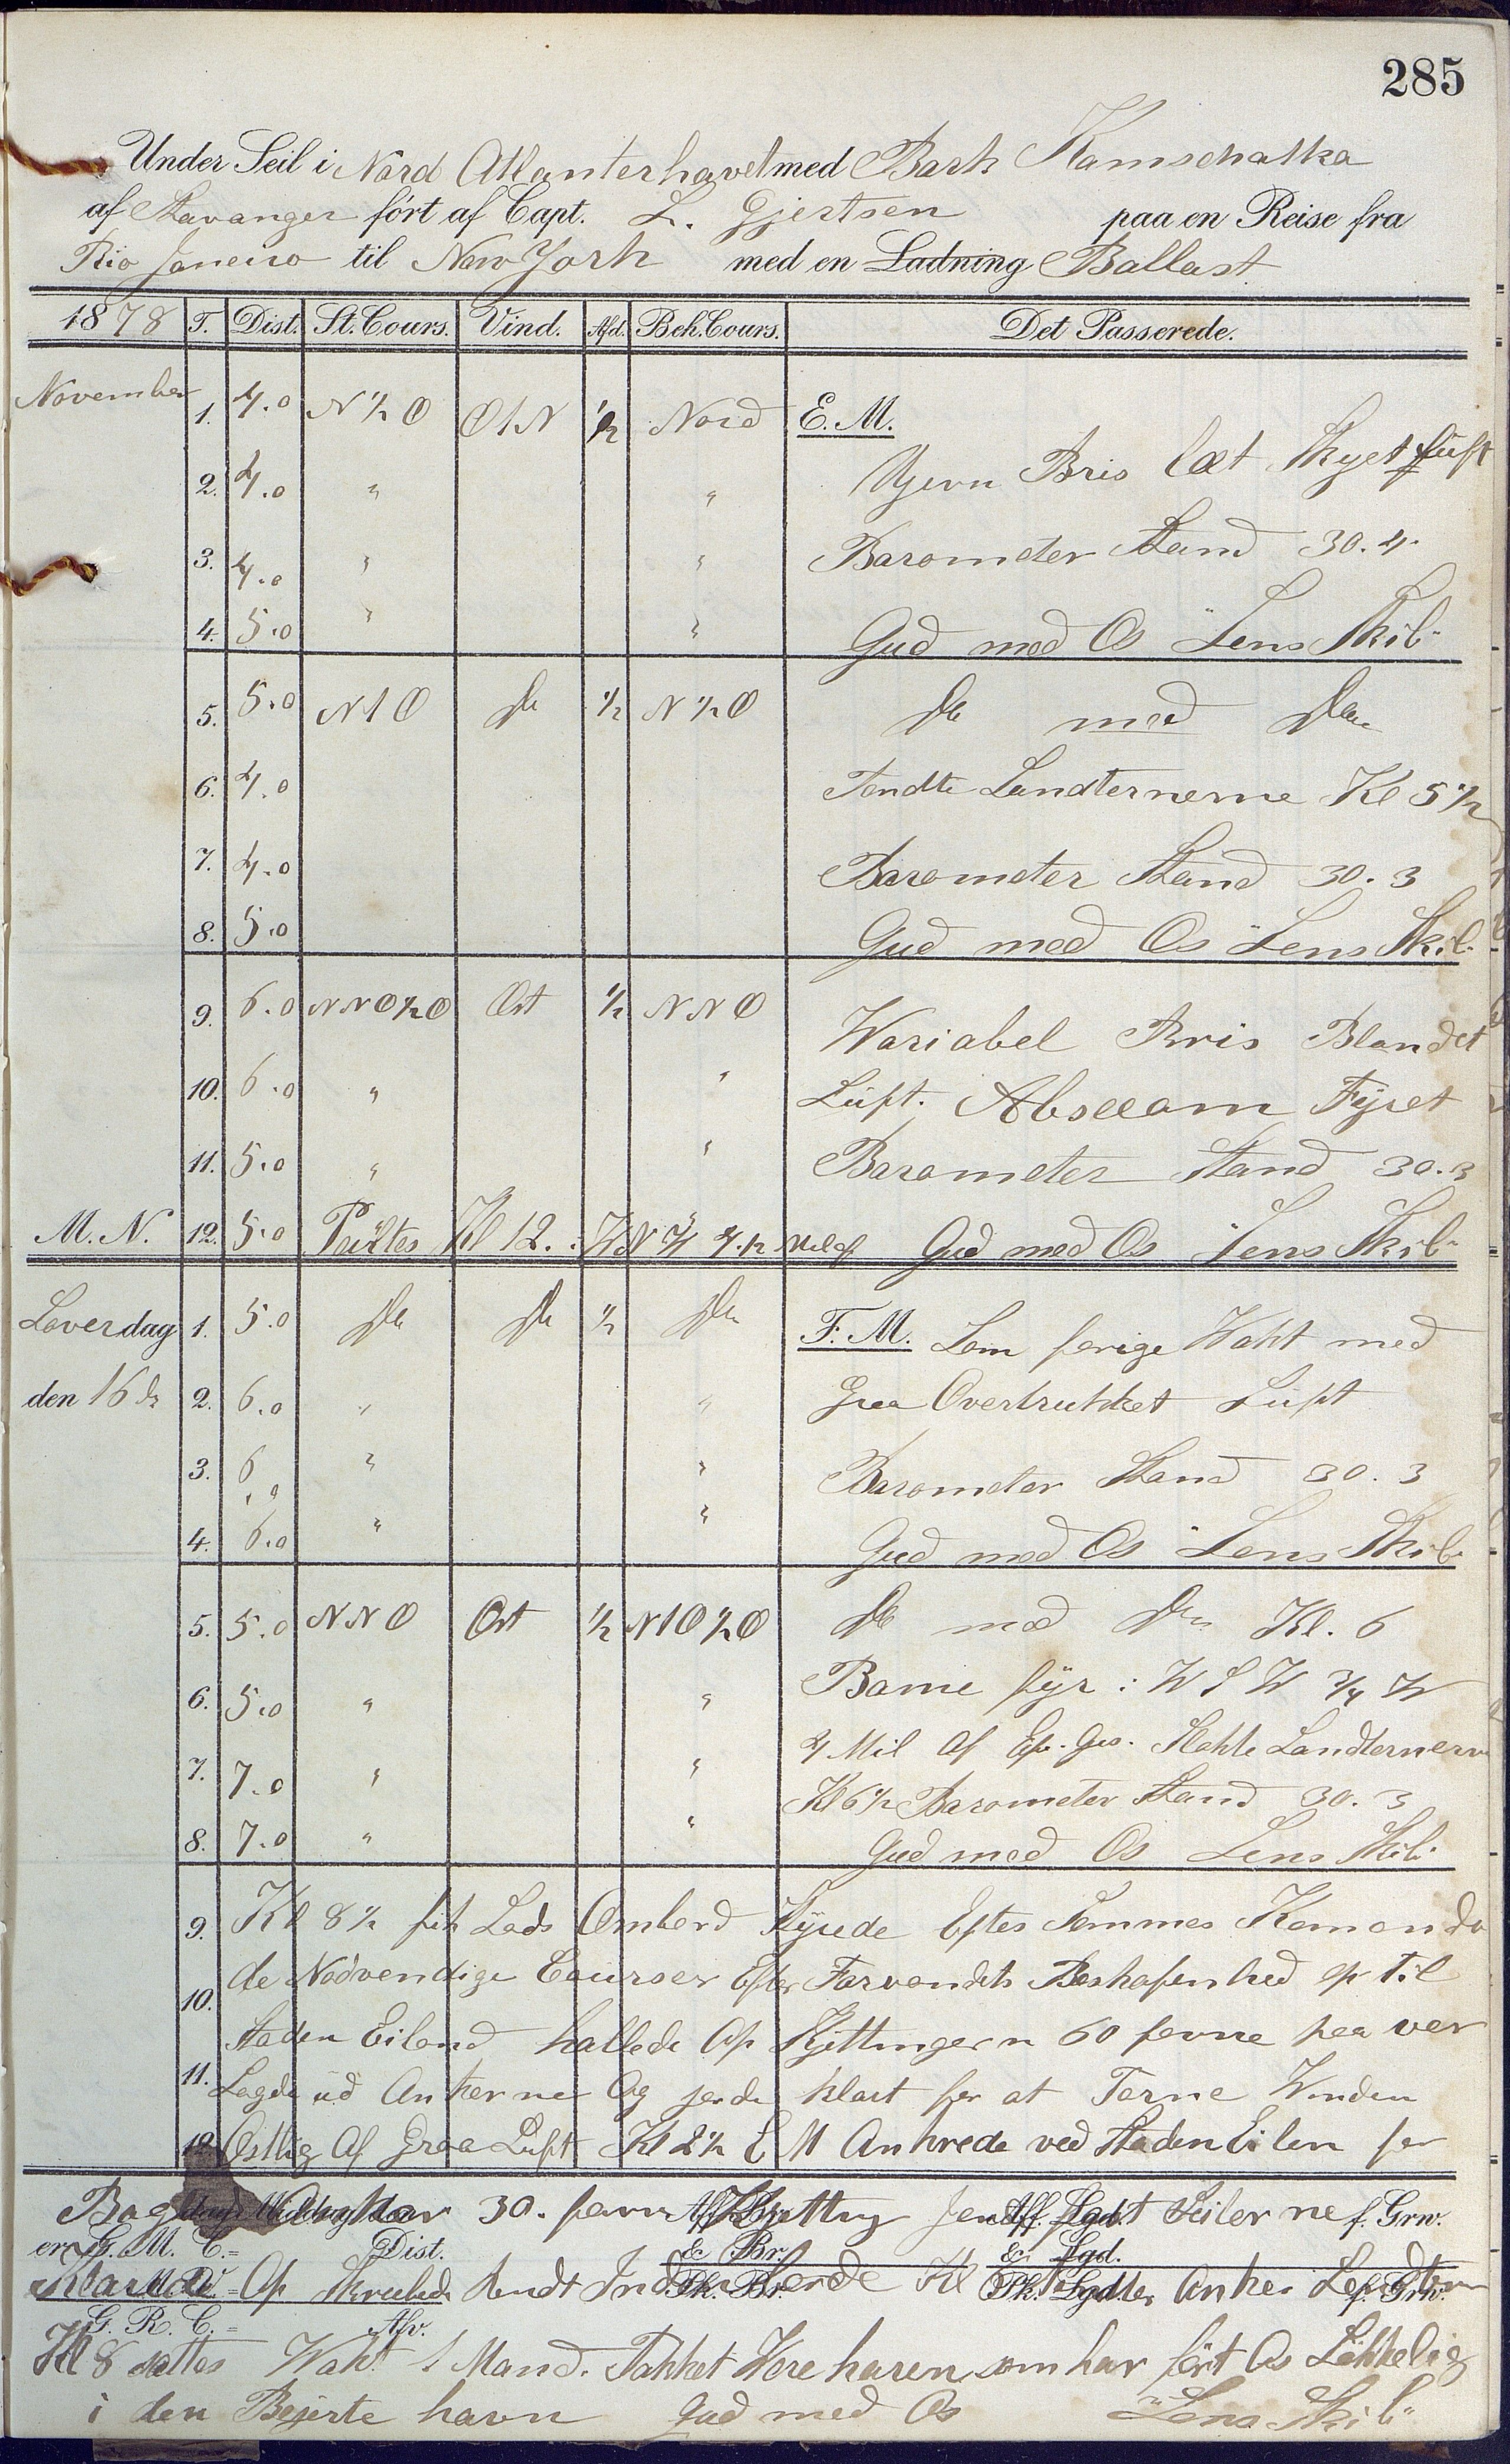 285
Under Seil i Nord Atlanterhavet med Bark Kamschatka
af Stavanger ført af Capt. L. Gjertsen paa en Reise fra
Rio Janeiro til New York med en Ladning Ballast
1878 T. Dist. St. Cours. Vind. Afd. Beh. Cours. Det Passerede.
November 1. 4.0 N ½ O O t N ½ Nord E. M.
2. 4.0 " " Bris læt Skyet Luft
3. 4.0 " " Barometer Stand 30.4
4. 5.0 " " Gud med Os "Lens Skib"
5. 5.0 N t O Do ½ N ½ O Do med Do
6. 4.0 Tendte Landternerne Kl 5½
7. 4.0 Barometer Stand 30.3
8. 5.0 Gud med Os "Lens Skib"
9. 6.0 NNO ½ O Ost ½ NNO Wariabel Bris Blandet
10. 6.0 " " Luft. Abseeom Fyret
11. 5.0 " " Barometer Stand 30.3
M. N. 12. 5.0 Peiltes Kl 12. Gud med Os "Lens Skib"
Loverdag 1. 5.0 Do Do ½ Do F. M. Som forige Wakt med
den 16 d. 2. 6.0 " " Graa Overtrukket Luft
3. 6.0 " " Barometer Stand 30.3
4. 6.0 " " Gud med Os "Lens Skib"
5. 5.0 NNO Ost ½ N t O ½ O Do med Do Kl. 6
6. 5.0 " " fyr i W S W ¾ W
7. 7.0 " " 4 Mil Af Slokte Landternerne
8. 7.0 " " Kl 6½ Barometer Stand 30.3
Gud med Os Lens Skib"
9. Kl 8½ fik Lods Ombord Styrede Efter Komando
10. de Nødvendige Courser Efter Farvandets Beskafenhed op til
Staden Eiland hallede Op Kjettingern 60 favne paa ver
11. Lagde ud Ankerne Og jorde klart for at Torne Winden
12. Ostlig Af Graa Luft Kl 2½ E M Ankrede ved Staden Eilen for
30. favne Kjetting fast Seilerne f. Grw.
G. M. C. = Dist. & Br. & Lgd.
Op Rendt Kl Anker f. Grw.
G. R. C. = Afv.
Kl 8 sattes Wakt 1 Mand. Takket Wore haren som har ført Os Løkkelig
i den Bejerte havn Gud med Os "Lens Skib"